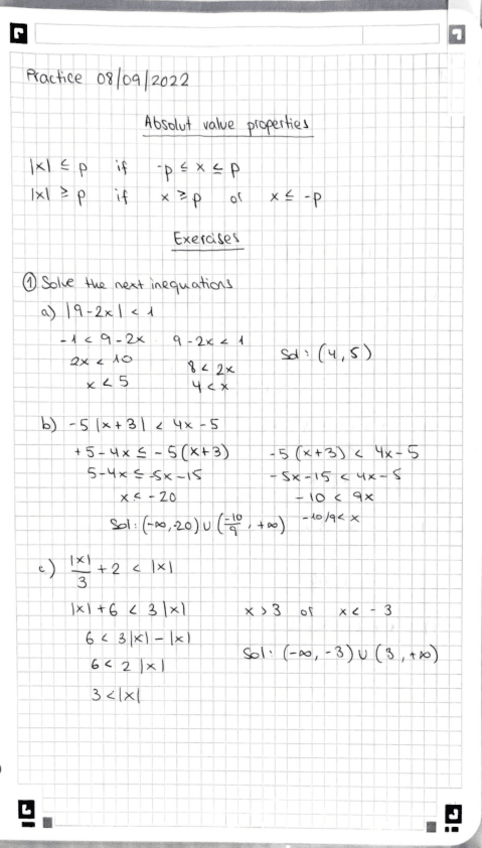 Practice 08/09/2022
Absolut value properties
|x| ≤ p if -p ≤ x ≤ p
|x| ≥ p if x ≥ p or x ≤ -p
Exercises
① Solve the next inequations
a) |9-2x| < 1
-1 < 9-2x 9-2x < 1
2x < 10 8 < 2x
x < 5 4 < x
Sol: (4,5)
b) -5|x+3| < 4x-5
+5-4x ≤ -5(x+3) -5(x+3) < 4x-5
5-4x ≤ -5x-15 -5x-15 < 4x-5
x < -20 -10 < 9x
-10/9 < x
Sol: (-∞,-20) ∪ (-10/9, +∞)
c) |x|/3 + 2 < |x|
|x|+6 < 3|x| x > 3 or x < -3
6 < 3|x| - |x|
6 < 2|x| Sol: (-∞, -3) ∪ (3, +∞)
3 < |x|